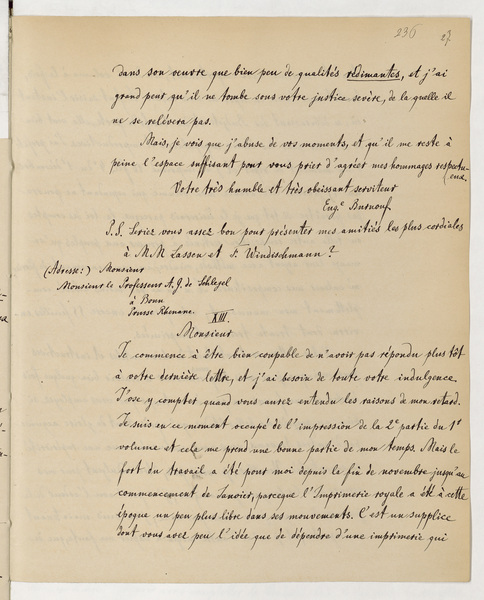 236
27
dans son œuvre que bien peu de qualités redimantes, et j'ai
grand peur qu'il ne tombe sous votre justice sevère, de la quelle il
ne se relévera pas.
Mais, je vois que j'abuse de vos moments, et qu'il me reste à
peine l'espace suffisant pour vous prier d'agréer mes hommages respectu-
eux.
Votre très humble et très obeissant serviteur
Eug.e Burnouf
P.S. Seriez vous assez bon pour présenter mes amitiés les plus cordiales
à M.M. Lassen et F. Windischmann?
(Adresse:) Monsieur
Monsieur le Professeur A. G. de Schlegel
à Bonn
Prusse Rhenane.
XIII.
Monsieur
Je commence à être bien coupable de n'avoir pas répondu plus tôt
à votre dernière lettre, et j'ai besoin de toute votre indulgence.
J'ose y compter quand vous aurez entendu les raisons de mon retard.
Je suis en ce moment occupé de l'impression de la 2e partie du 1r
volume et cela me prend une bonne partie de mon temps. Mais le
fort du travail a été pour moi depuis la fin de novembre jusqu'au
commencement de Janvier, parceque l'Imprimerie royale a été à cette
époque un peu plus libre dans ses mouvements. C'est un supplice
dont vous avez peu l'idée que de dépendre d'une imprimerie qui